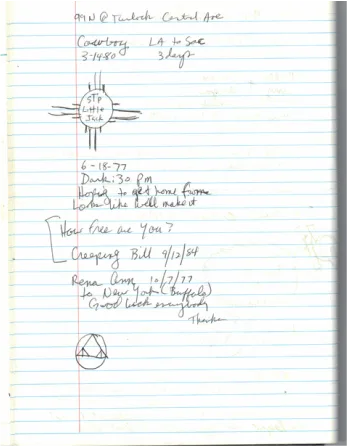 99 N @ Turlock Central Ave
Cowboy LA to Sac
3-14-80 3 days
STP
Little
Jack
6-18-77
Dark:30 pm
Hoping to get home from
Looks like I will make it
How Free are You?
Creeping Bill 9/12/84
Rena Ann 10/7/77
to New York (Buffalo)
Good luck everybody
Thanks